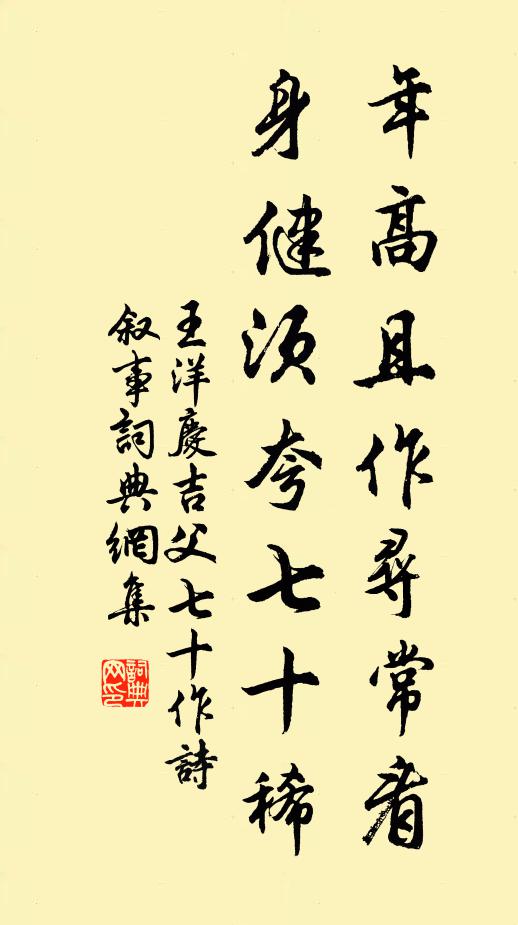 年高且作尋常看
身健須夸七十稀
王洋慶吉父七十作詩
叙事詞典網集
詞典网印